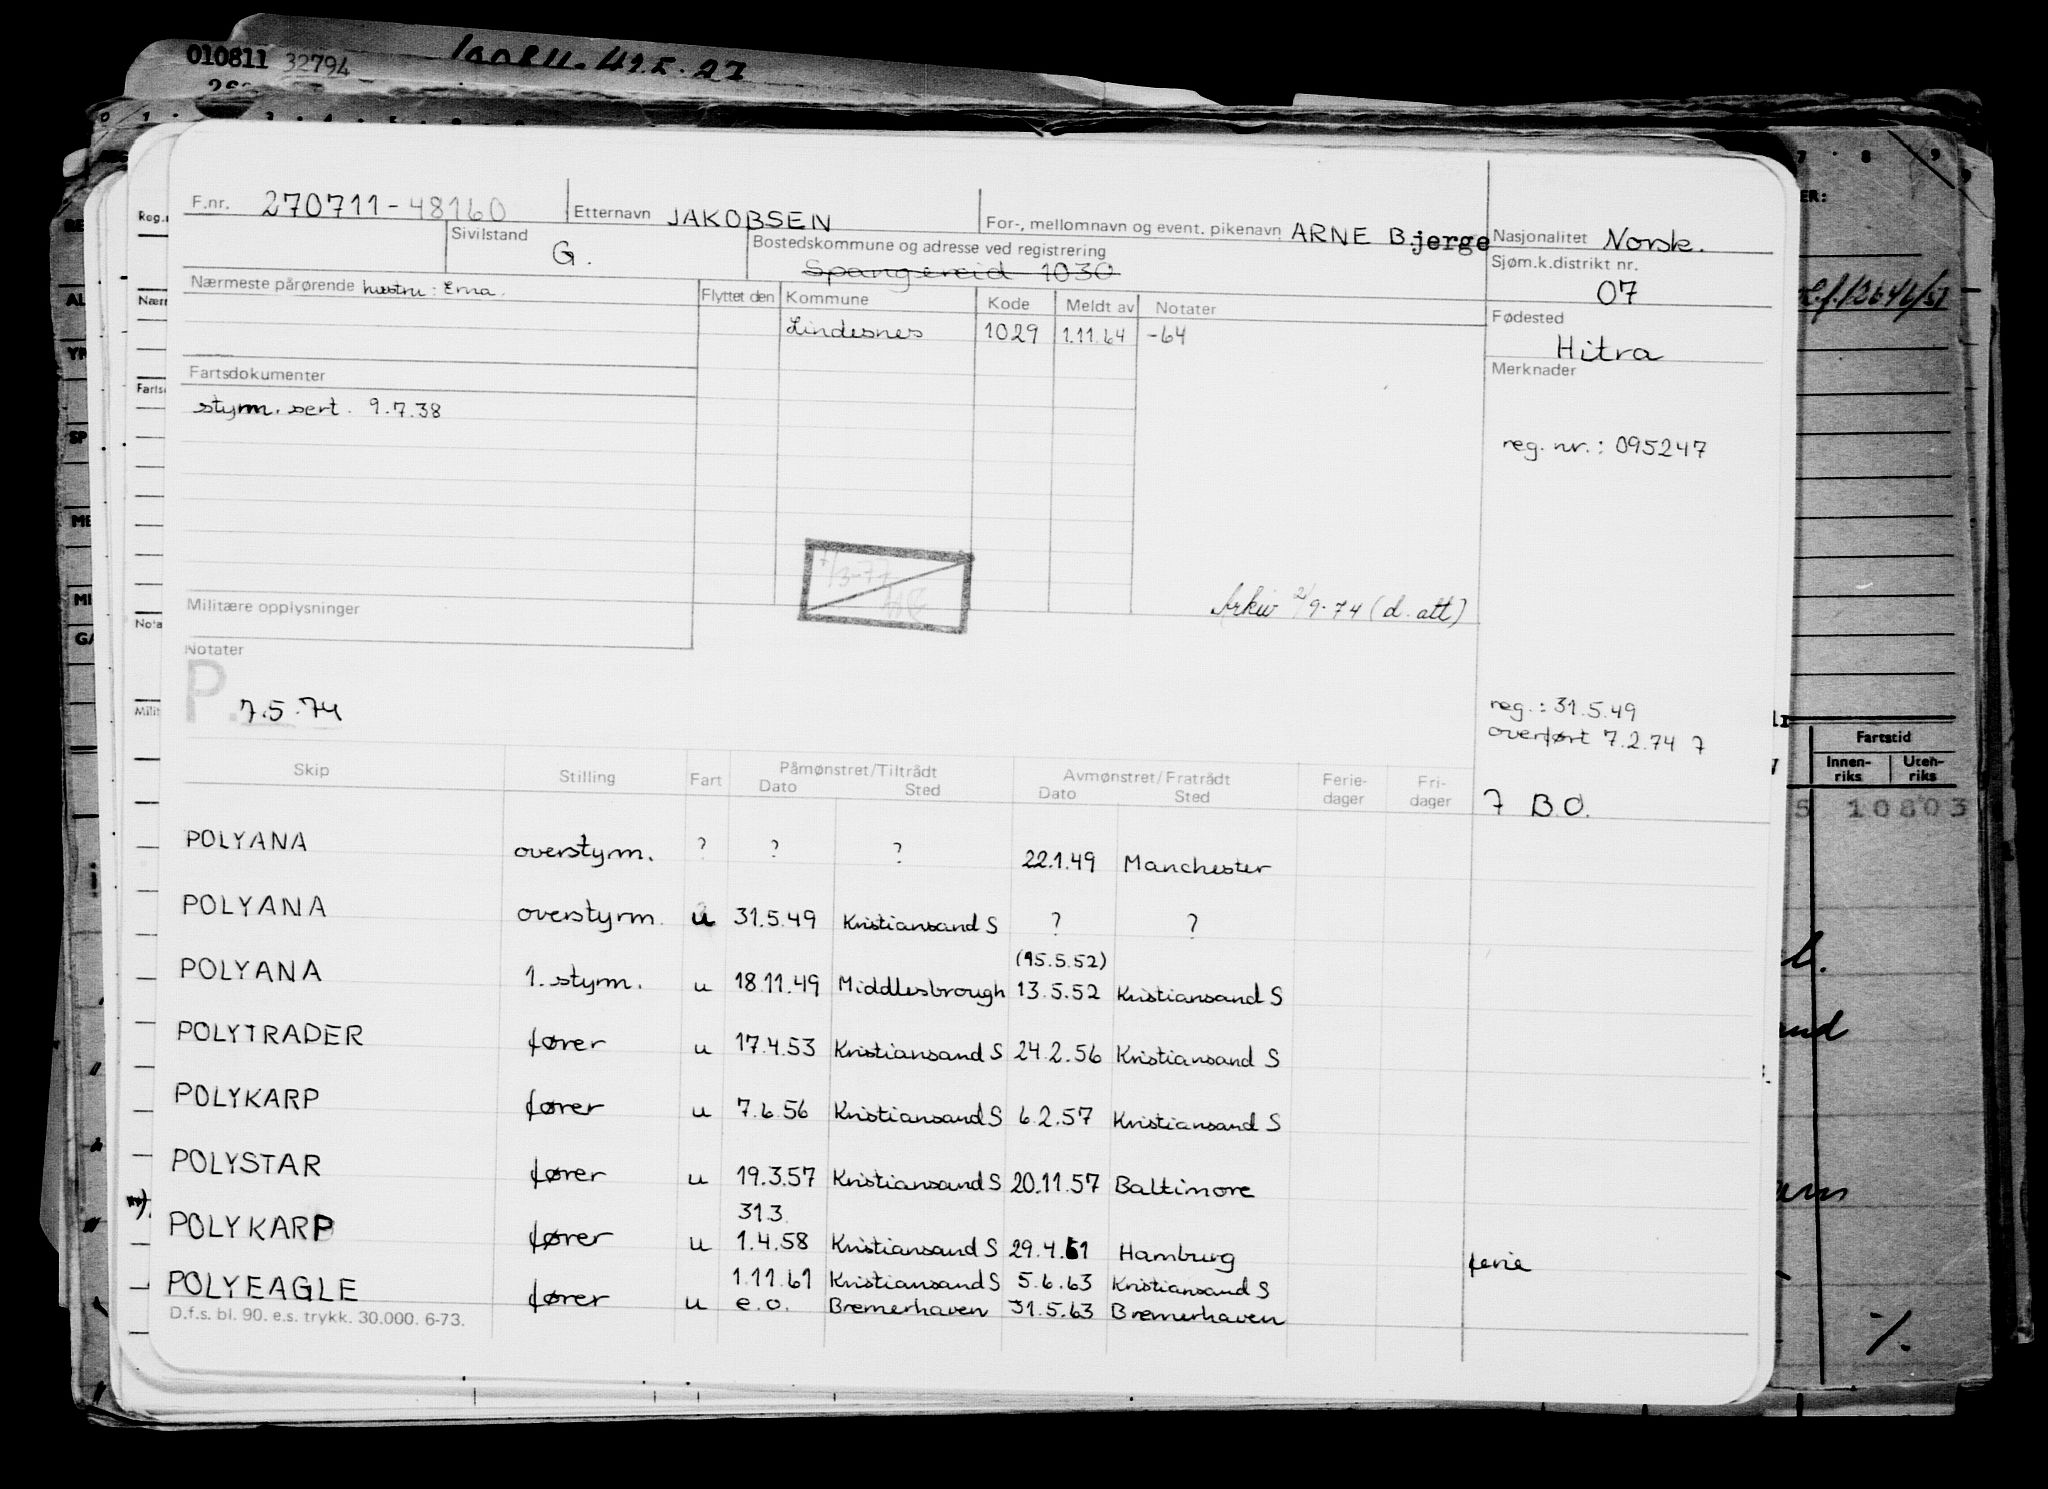 010811 32794
F.nr. 270711-48160 Etternavn JAKOBSEN For-, mellomnavn og event. pikenavn ARNE B.jerge Nasjonalitet Norsk.
Sivilstand G. Bostedskommune og adresse ved registrering Spangereid 1030 Sjøm.k.distrikt nr. 07
Nærmeste pårørende hustru: Erna. Flyttet den Kommune Kode Meldt av Notater Fødested Hitra
Lindesnes 1029 1.11.64 -64
Fartsdokumenter Merknader
styrm. sert. 9.7.38
reg. nr.: 095247
Militære opplysninger Arkiv 2/9-74 (d. att)
Notater
P. 7.5.74
reg.: 31.5.49
overført 7.2.74 7
Fartstid
Innen-riks Uten-riks
Skip Stilling Fart Påmønstret/Tiltrådt Avmønstret/Fratrådt Ferie-dager Fri-dager
Dato Sted Dato Sted
7 B.O.
5 10803
POLYANA overstyrm. ? ? ? 22.1.49 Manchester
POLYANA overstyrm. u 31.5.49 Kristiansand S ? ?
(15.5.52)
POLYANA 1. styrm. u 18.11.49 Middlesbrough 13.5.52 Kristiansand S
POLYTRADER fører u 17.4.53 Kristiansand S 24.2.56 Kristiansand S
POLYKARP fører u 7.6.56 Kristiansand S 6.2.57 Kristiansand S
POLYSTAR fører u 19.3.57 Kristiansand S 20.11.57 Baltimore
31.3.
POLYKARP fører u 1.4.58 Kristiansand S 29.4.61 Hamburg ferie
1.11.61 Kristiansand S 5.6.63 Kristiansand S
POLYEAGLE fører u e.o. Bremerhaven 31.5.63 Bremerhaven
D.f.s. bl. 90. e.s. trykk. 30.000. 6-73.